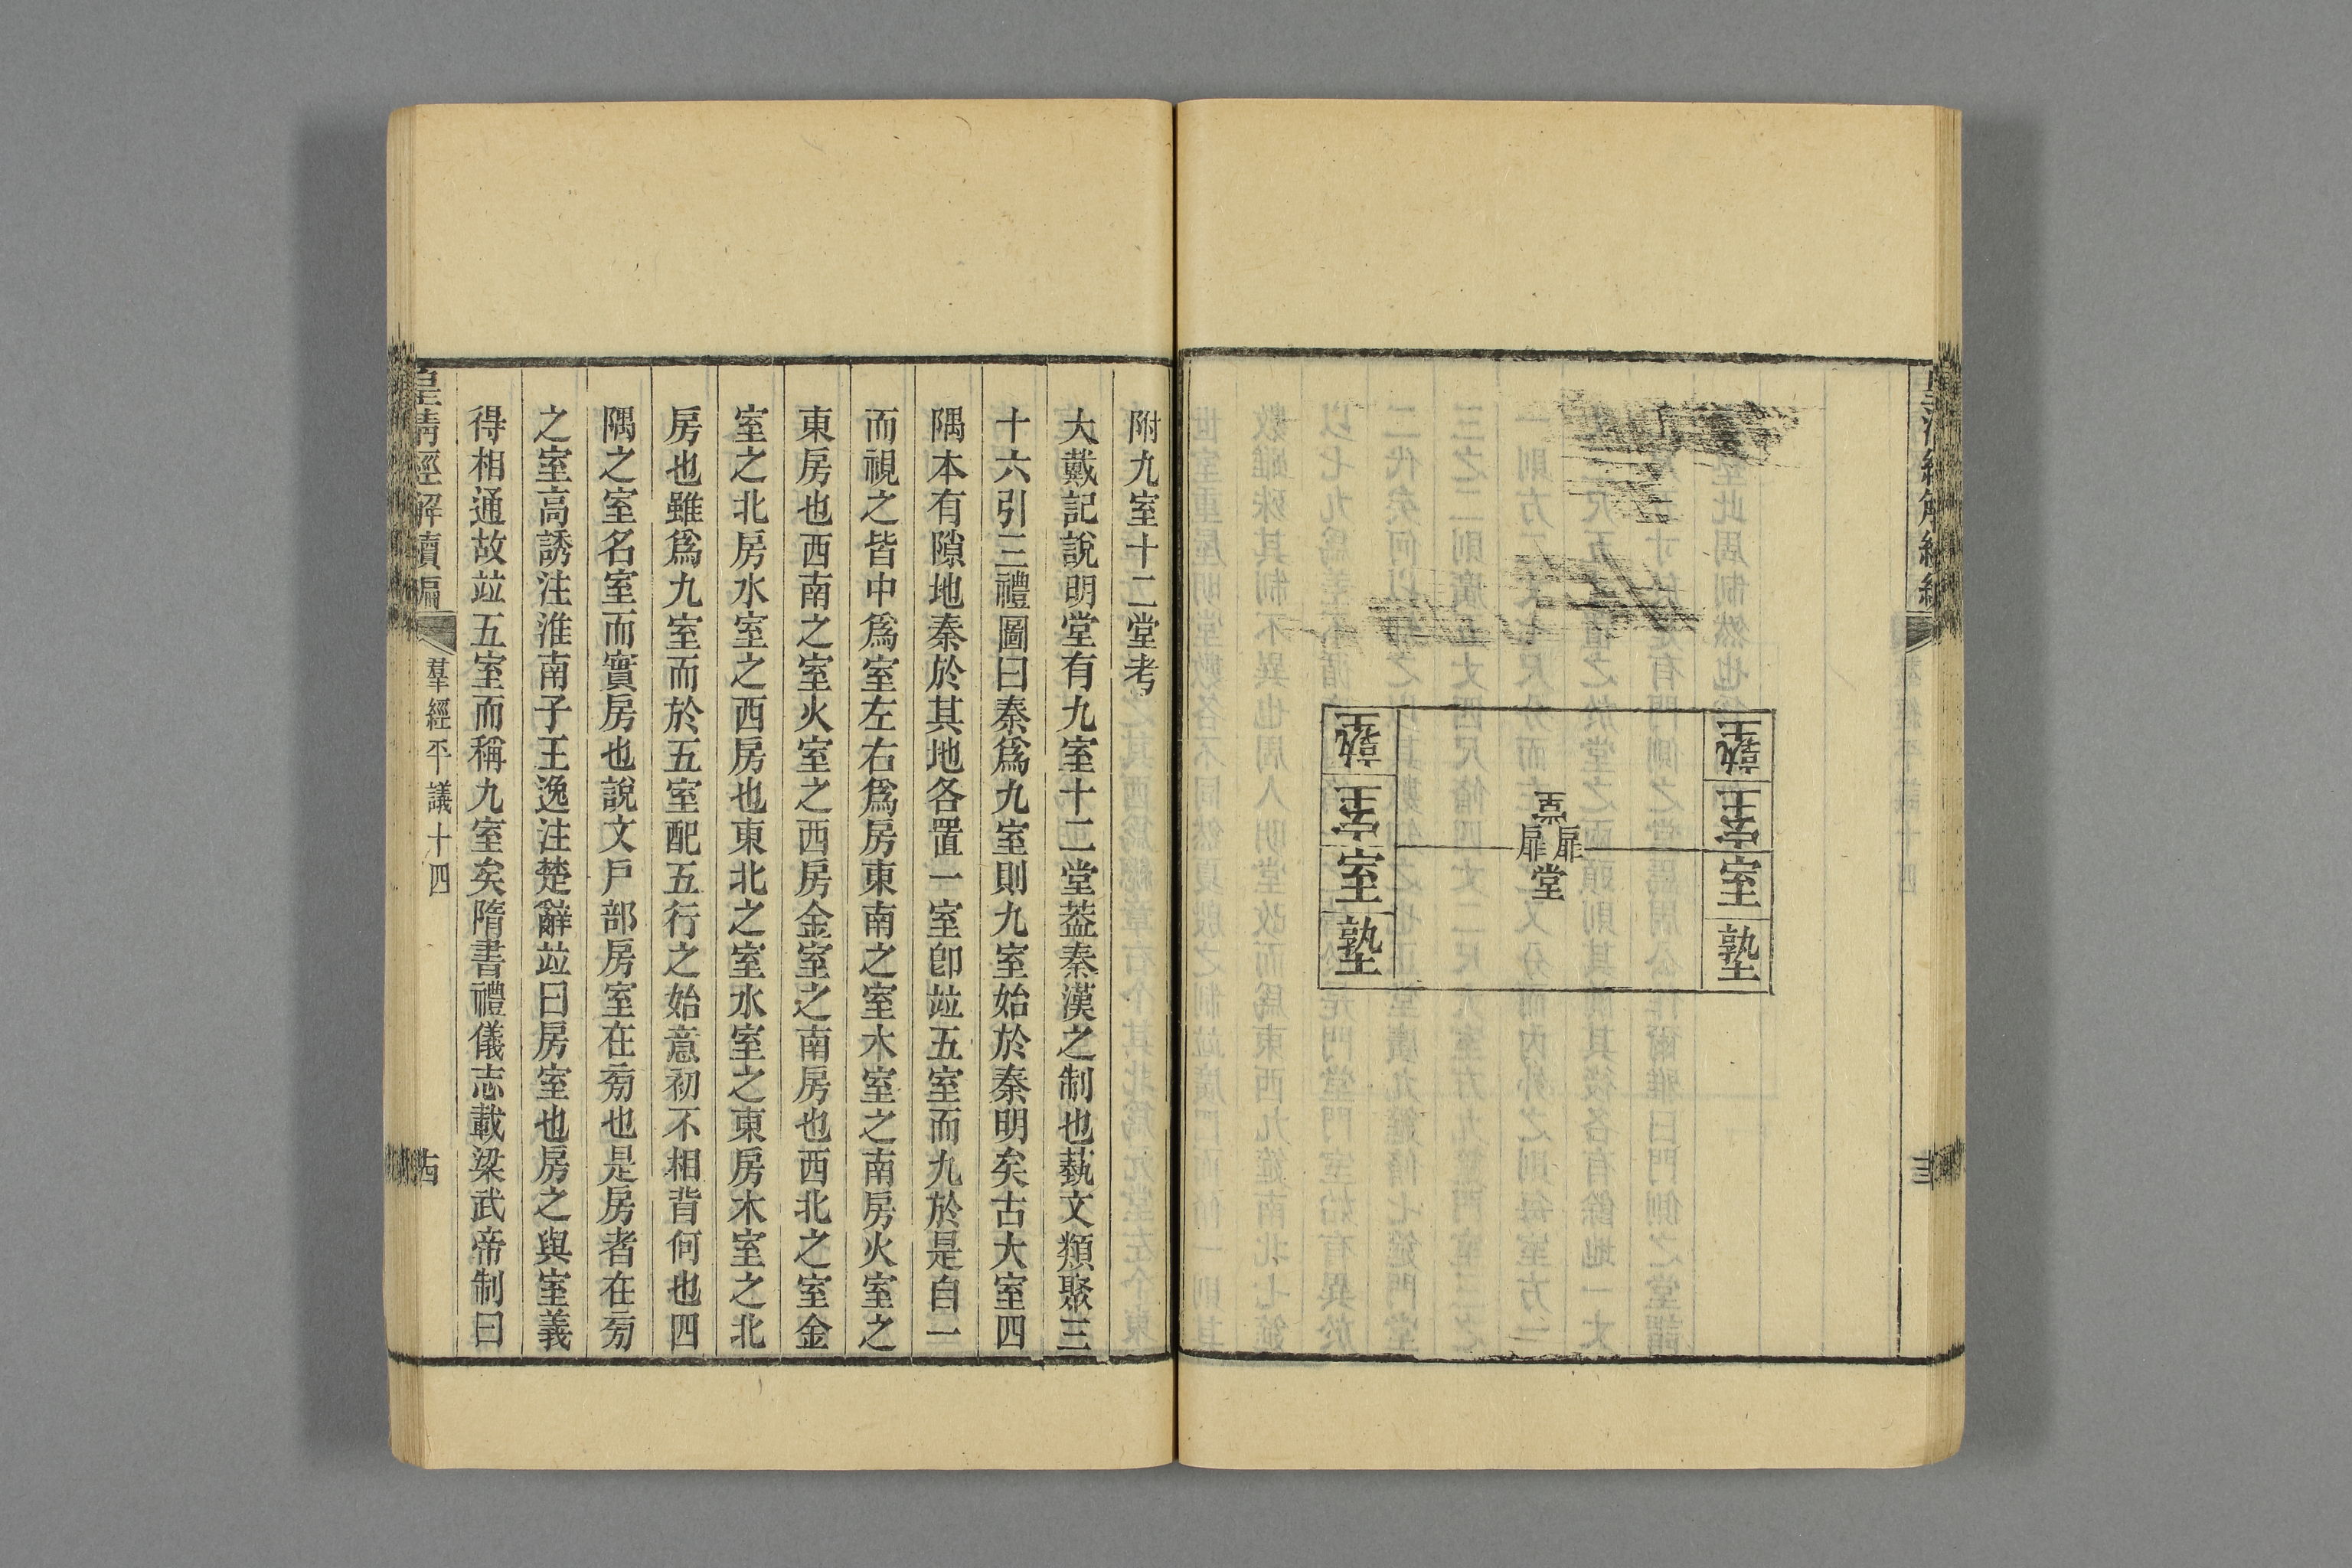 塾 室 室 塾
堂
扉 扉
堂
塾 室 室 塾
附九室十二堂考
大戴記說明堂有九室十二堂葢秦漢之制也藝文類聚三
十六引三禮圖曰秦爲九室則九室始於秦明矣古大室四
隅本有隙地秦於其地各置一室卽竝五室而九於是自一
而視之皆中爲室左右爲房東南之室木室之南房火室之
東房也西南之室火室之西房金室之南房也西北之室金
室之北房水室之西房也東北之室水室之東房木室之北
房也雖爲九室而於五室配五行之始意初不相背何也四
隅之室名室而實房也說文戶部房室在㫄也是房者在㫄
之室高誘注淮南子王逸注楚辭竝曰房室也房之與室義
得相通故竝五室而稱九室矣隋書禮儀志載梁武帝制曰
皇清經解續編
羣經平議十四